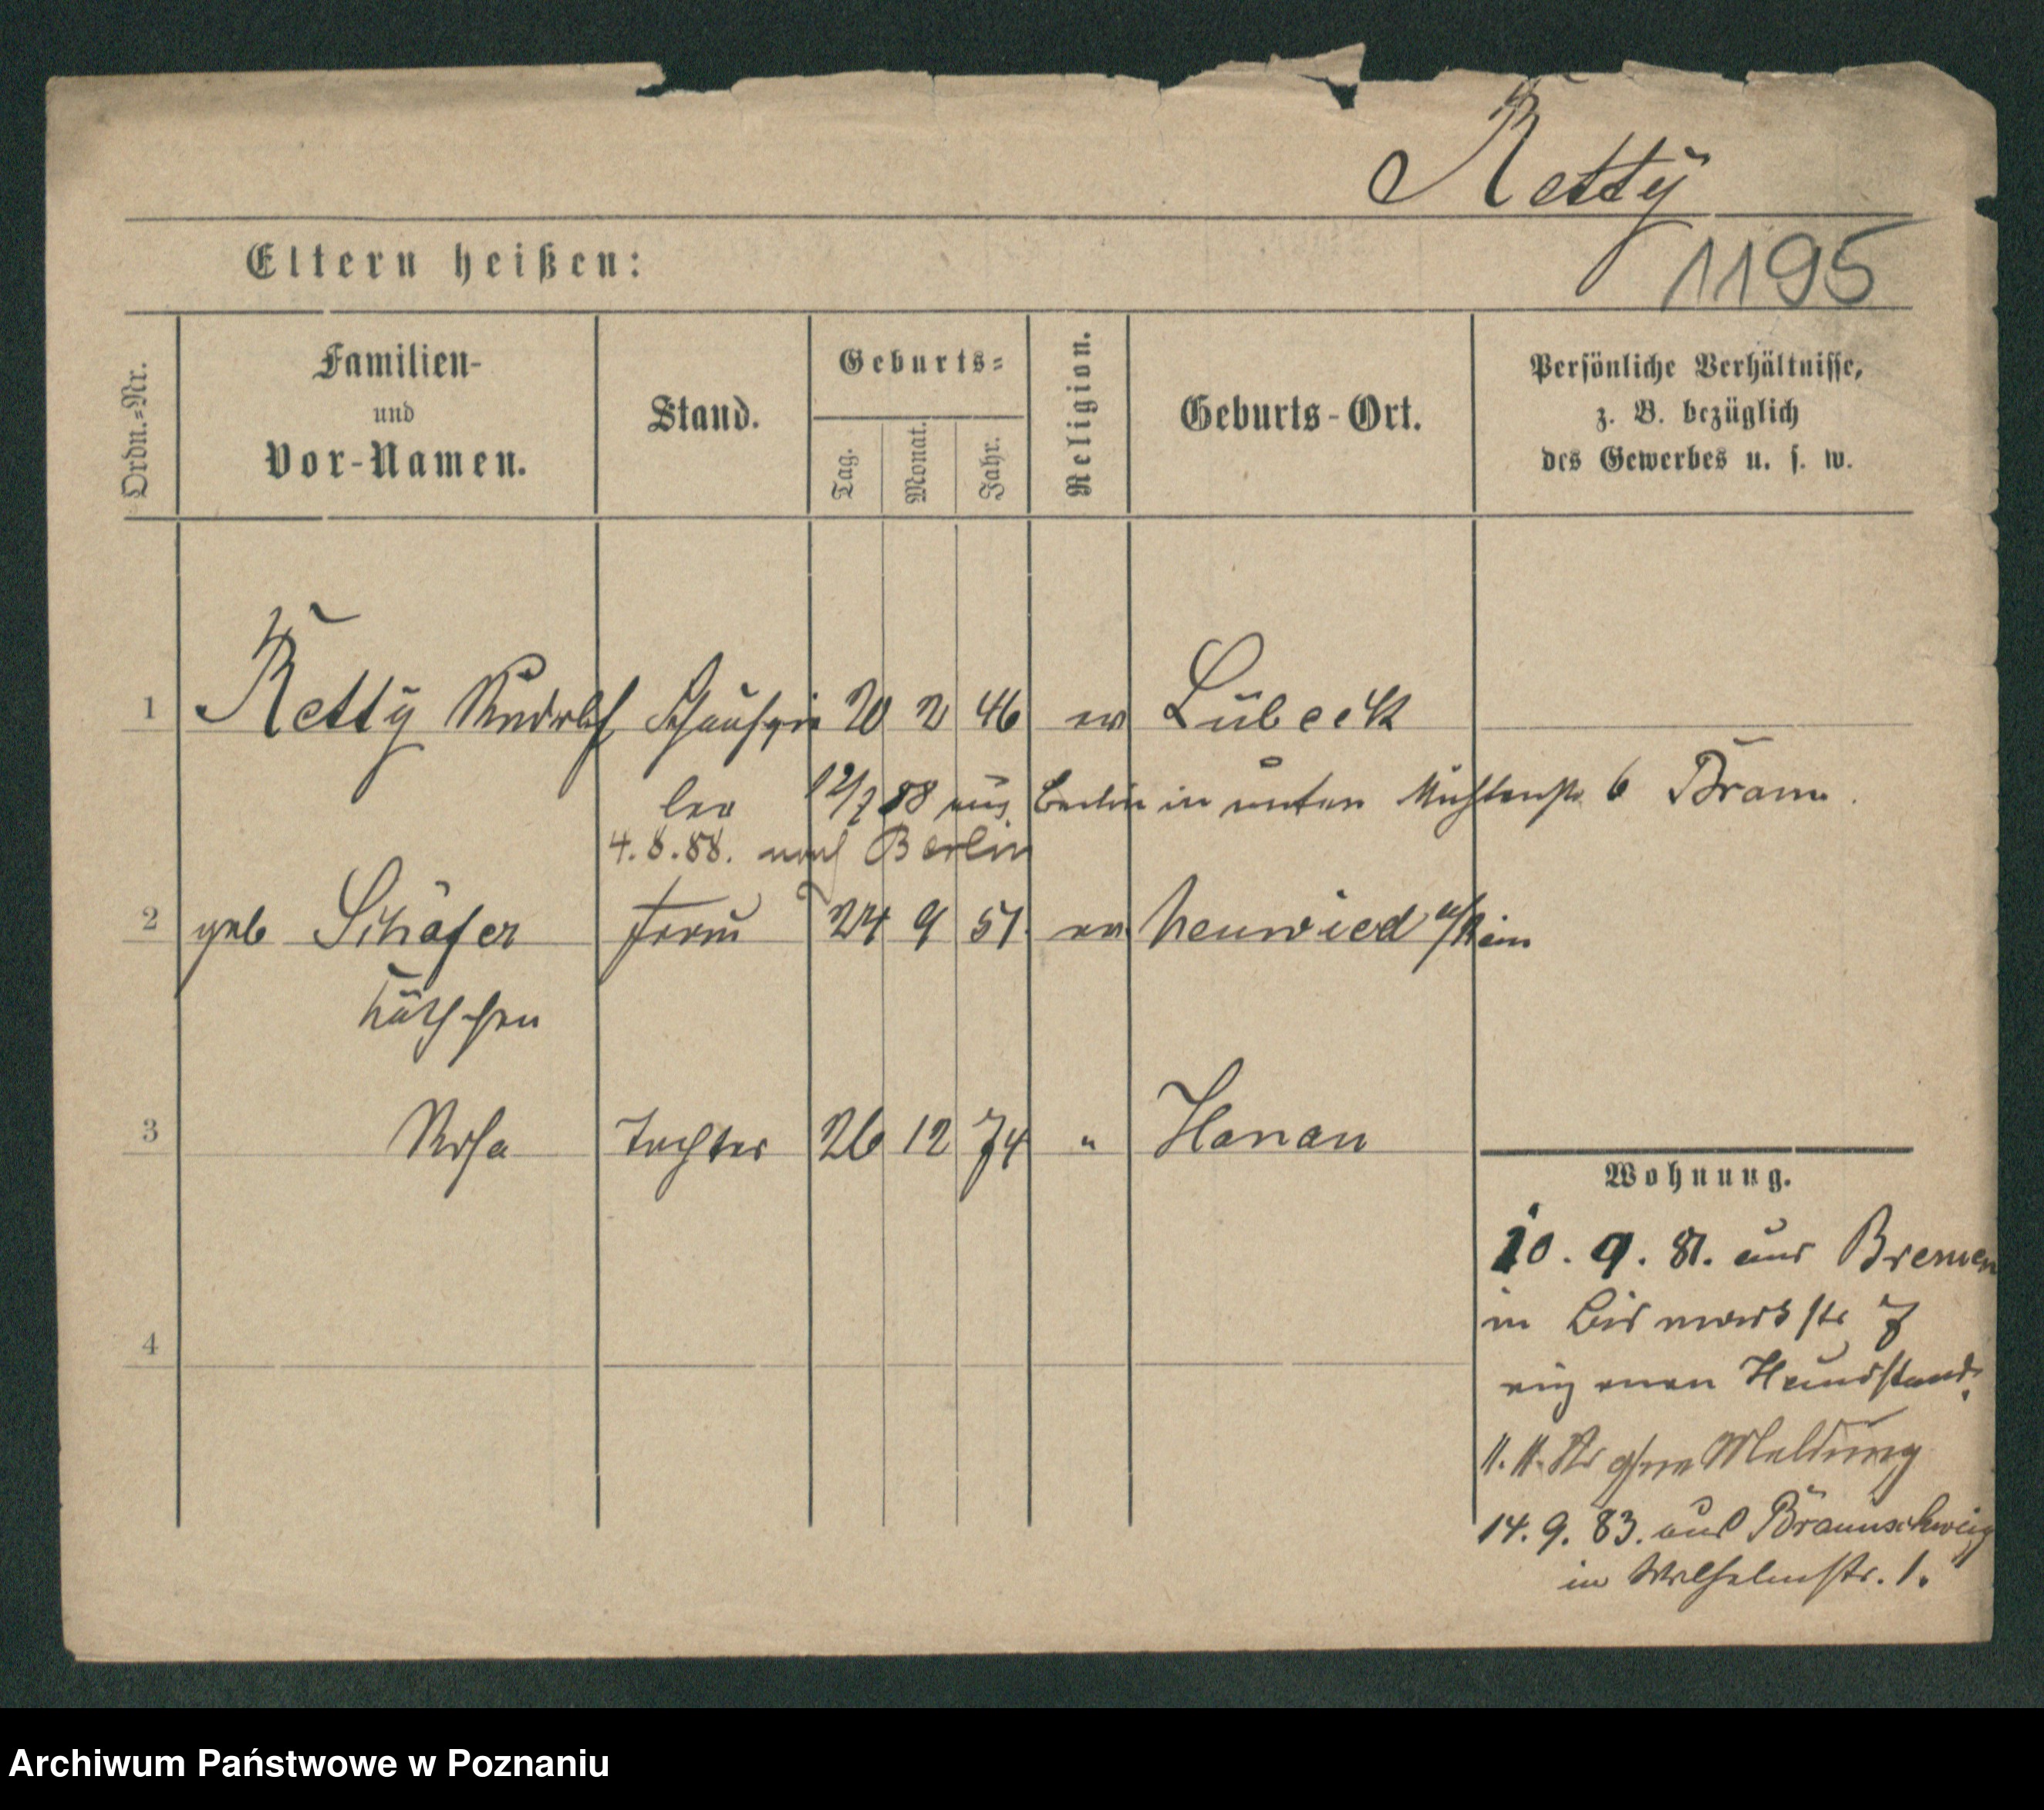 Retty
1195
Eltern heißen:
Ordn.-Nr.
Familien-
und
Vor-Namen.
Stand.
Geburts-
Tag.
Monat.
Jahr.
Religion.
Geburts-Ort.
Persönliche Verhältnisse,
z. B. bezüglich
des Gewerbes u. s. w.
1 Retty Rudolf Schauspie 20 2 46 ev Lübeck
ler 12/7 88 aus Berlin in unten Mühlenstr 6 Bram.
4.8.88. nach Berlin
2 geb Schäfer Frau 24 9 51 ev Neuwied a/Rein
Käthchen
3 Rosa Tochter 26 12 74 " Hanau
Wohnung.
10. 9. 81. aus Bremen
in Bismarkstr 7
4
Hausstand.
11. 11. ohne Meldung
14. 9. 83. aus Braunschweig
in Wilhelmstr. 1.
Archiwum Państwowe w Poznaniu